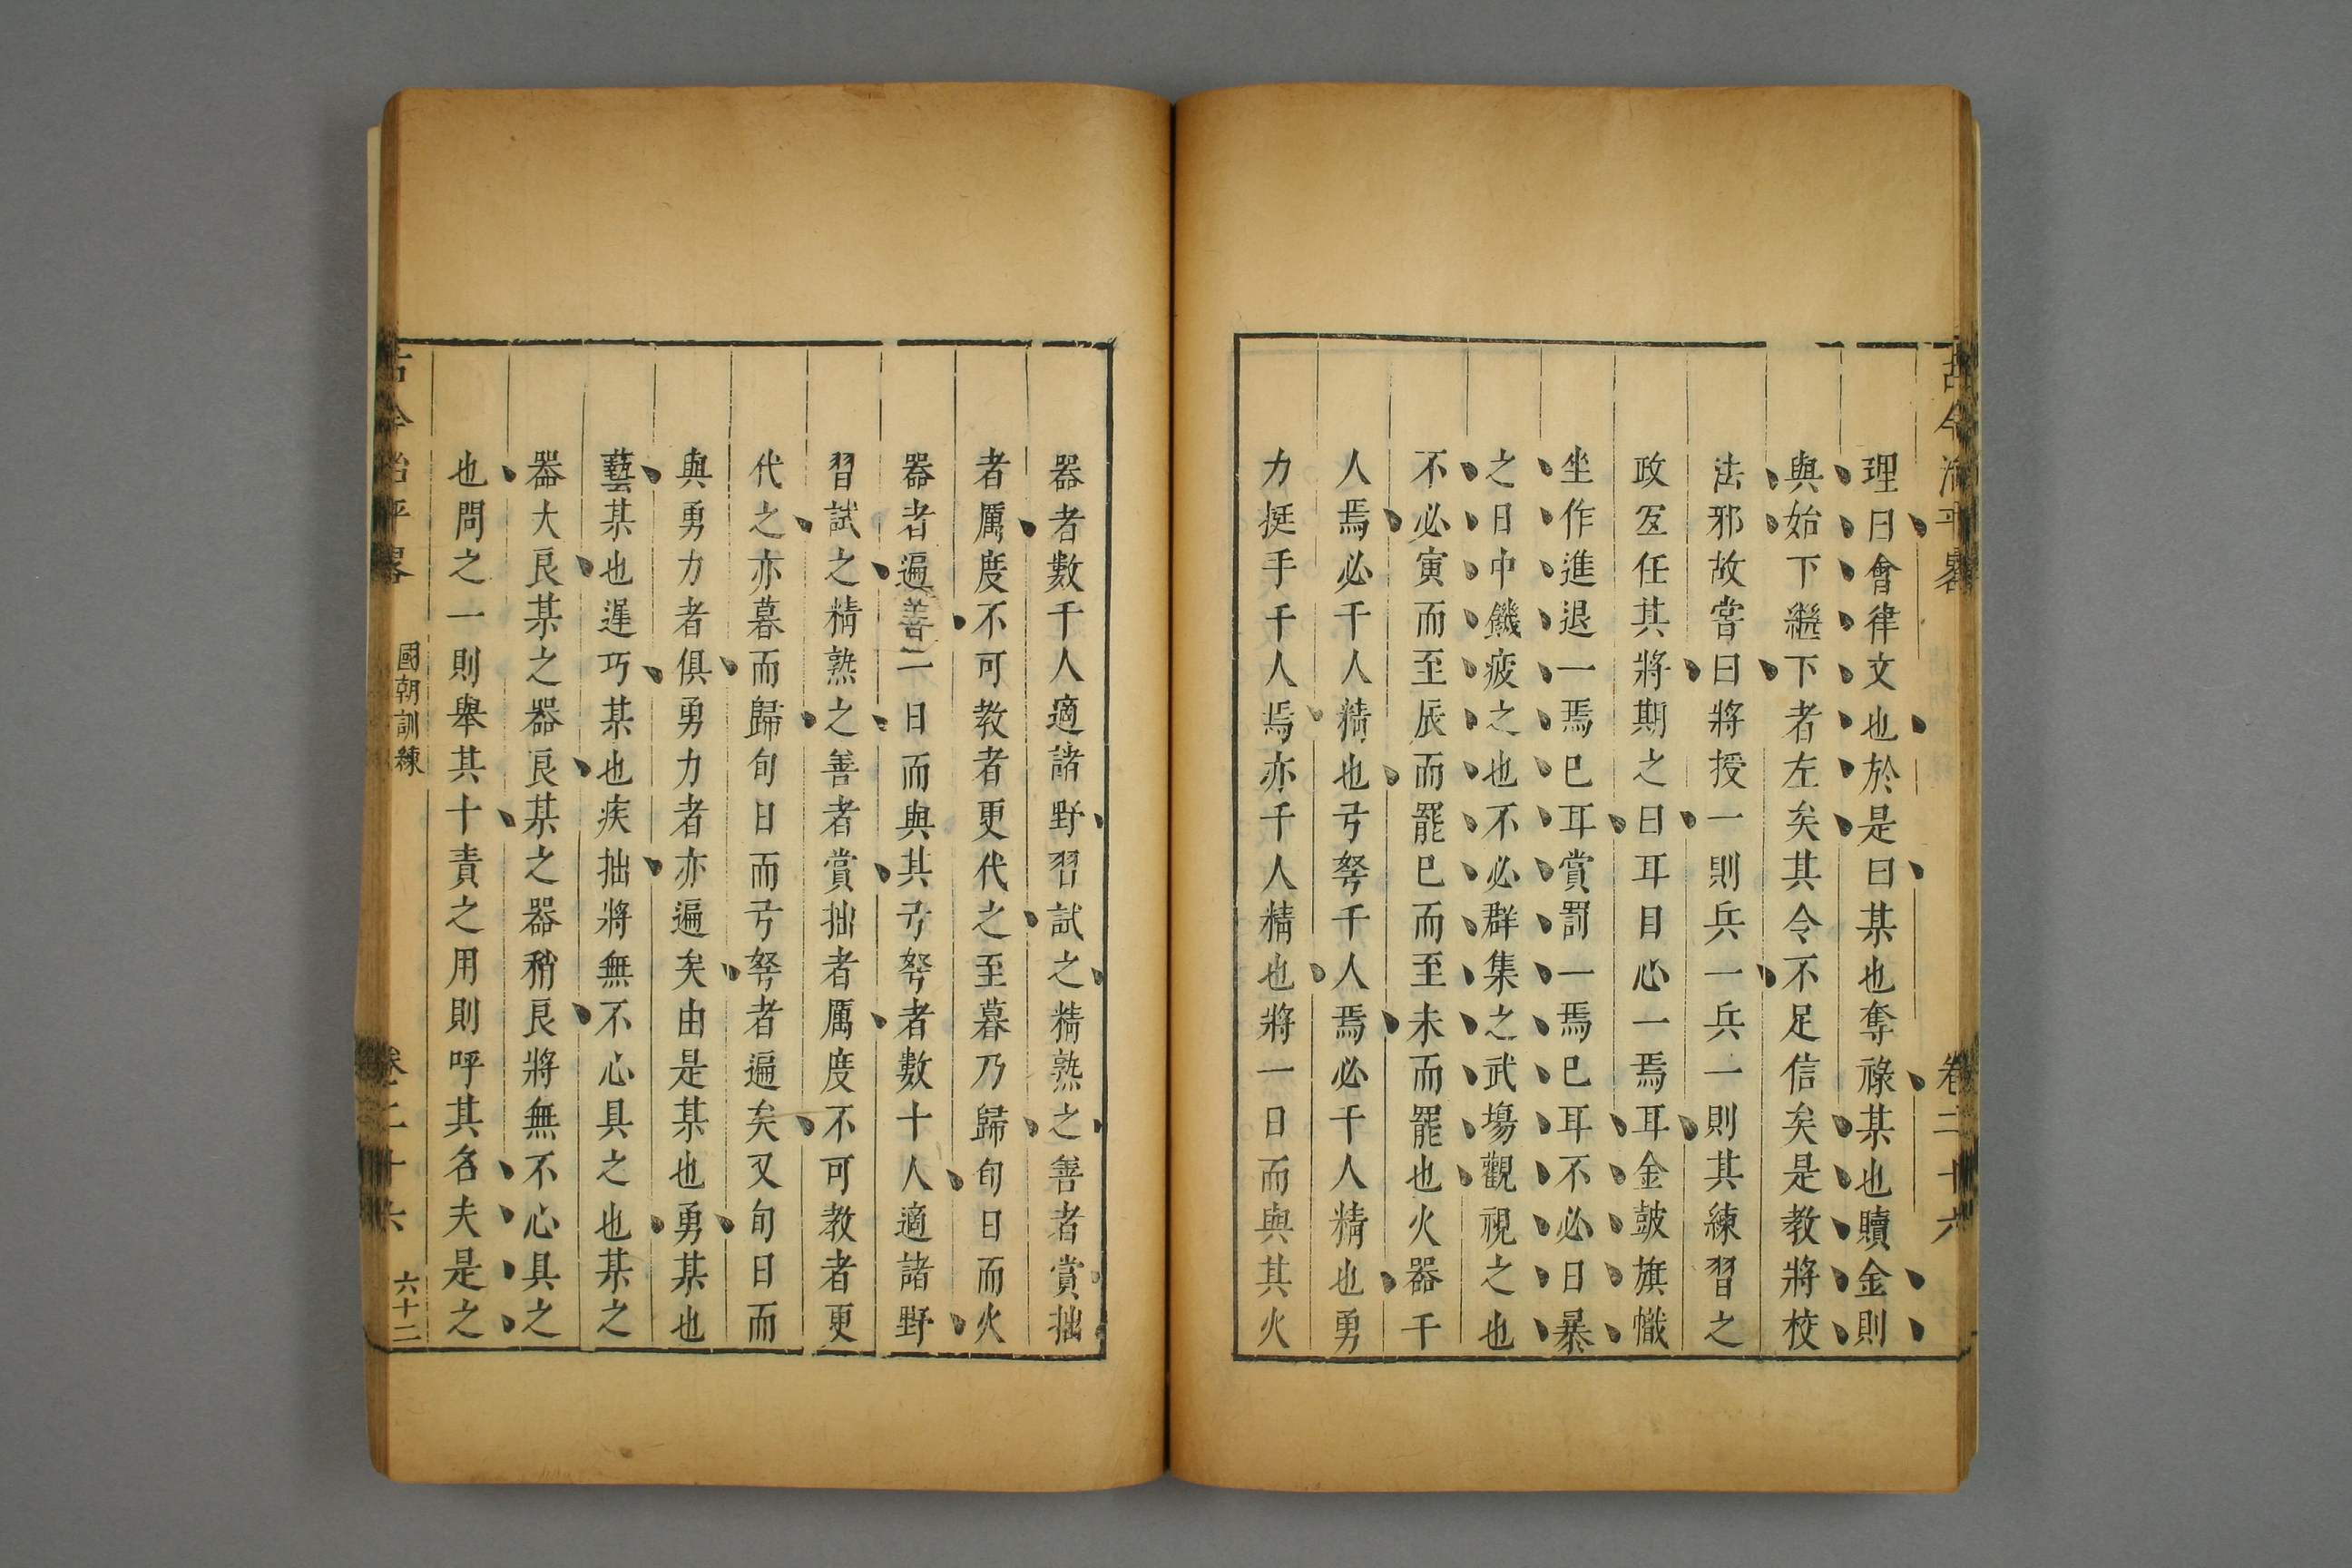 古今治平畧
卷二十六
理曰會律文也於是曰某也奪祿某也贖金則
與始下繼下者左矣其令不足信矣是教將校
法邪故嘗曰將授一則兵一兵一則其練習之
政宜任其將期之曰耳目心一焉耳金鼓旗幟
坐作進退一焉巳耳賞罰一焉巳耳不必日暴
之日中饑疲之也不必群集之武場觀視之也
不必寅而至辰而罷巳而至未而罷也火器千
人焉必千人精也弓弩千人焉必千人精也勇
力挺手千人焉亦千人精也將一日而與其火
器者數千人適諸野習試之精熟之善者賞拙
者厲度不可教者更代之至暮乃歸旬日而火
器者遍善二日而與其弓弩者數十人適諸野
習試之精熟之善者賞拙者厲度不可教者更
代之亦暮而歸旬日而弓弩者遍矣又旬日而
與勇力者俱勇力者亦遍矣由是某也勇某也
藝某也遲巧某也疾拙將無不心具之也某之
器大良某之器良某之器稍良將無不心具之
也問之一則舉其十責之用則呼其名夫是之
古今治平畧
國朝訓練
卷二十六
六十二